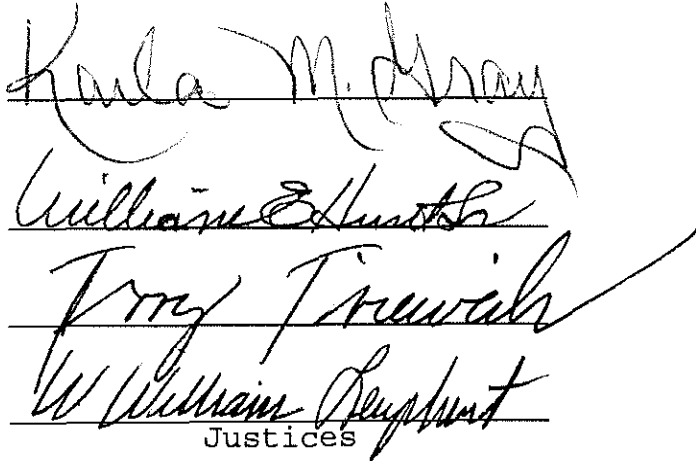 Karla M. Gray
William E Hunt Sr
Terry Trieweiler
W William Leaphart
Justices